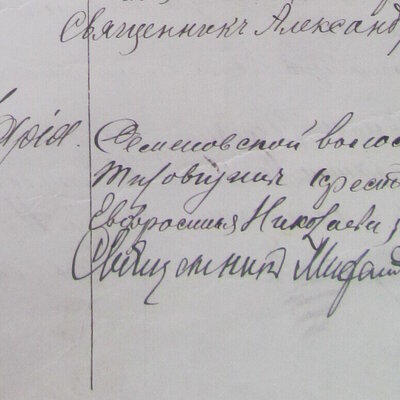 Священникъ Александ
арія. Семеновской волос
крест
Евфросинія Николаева
Священникъ Михаил